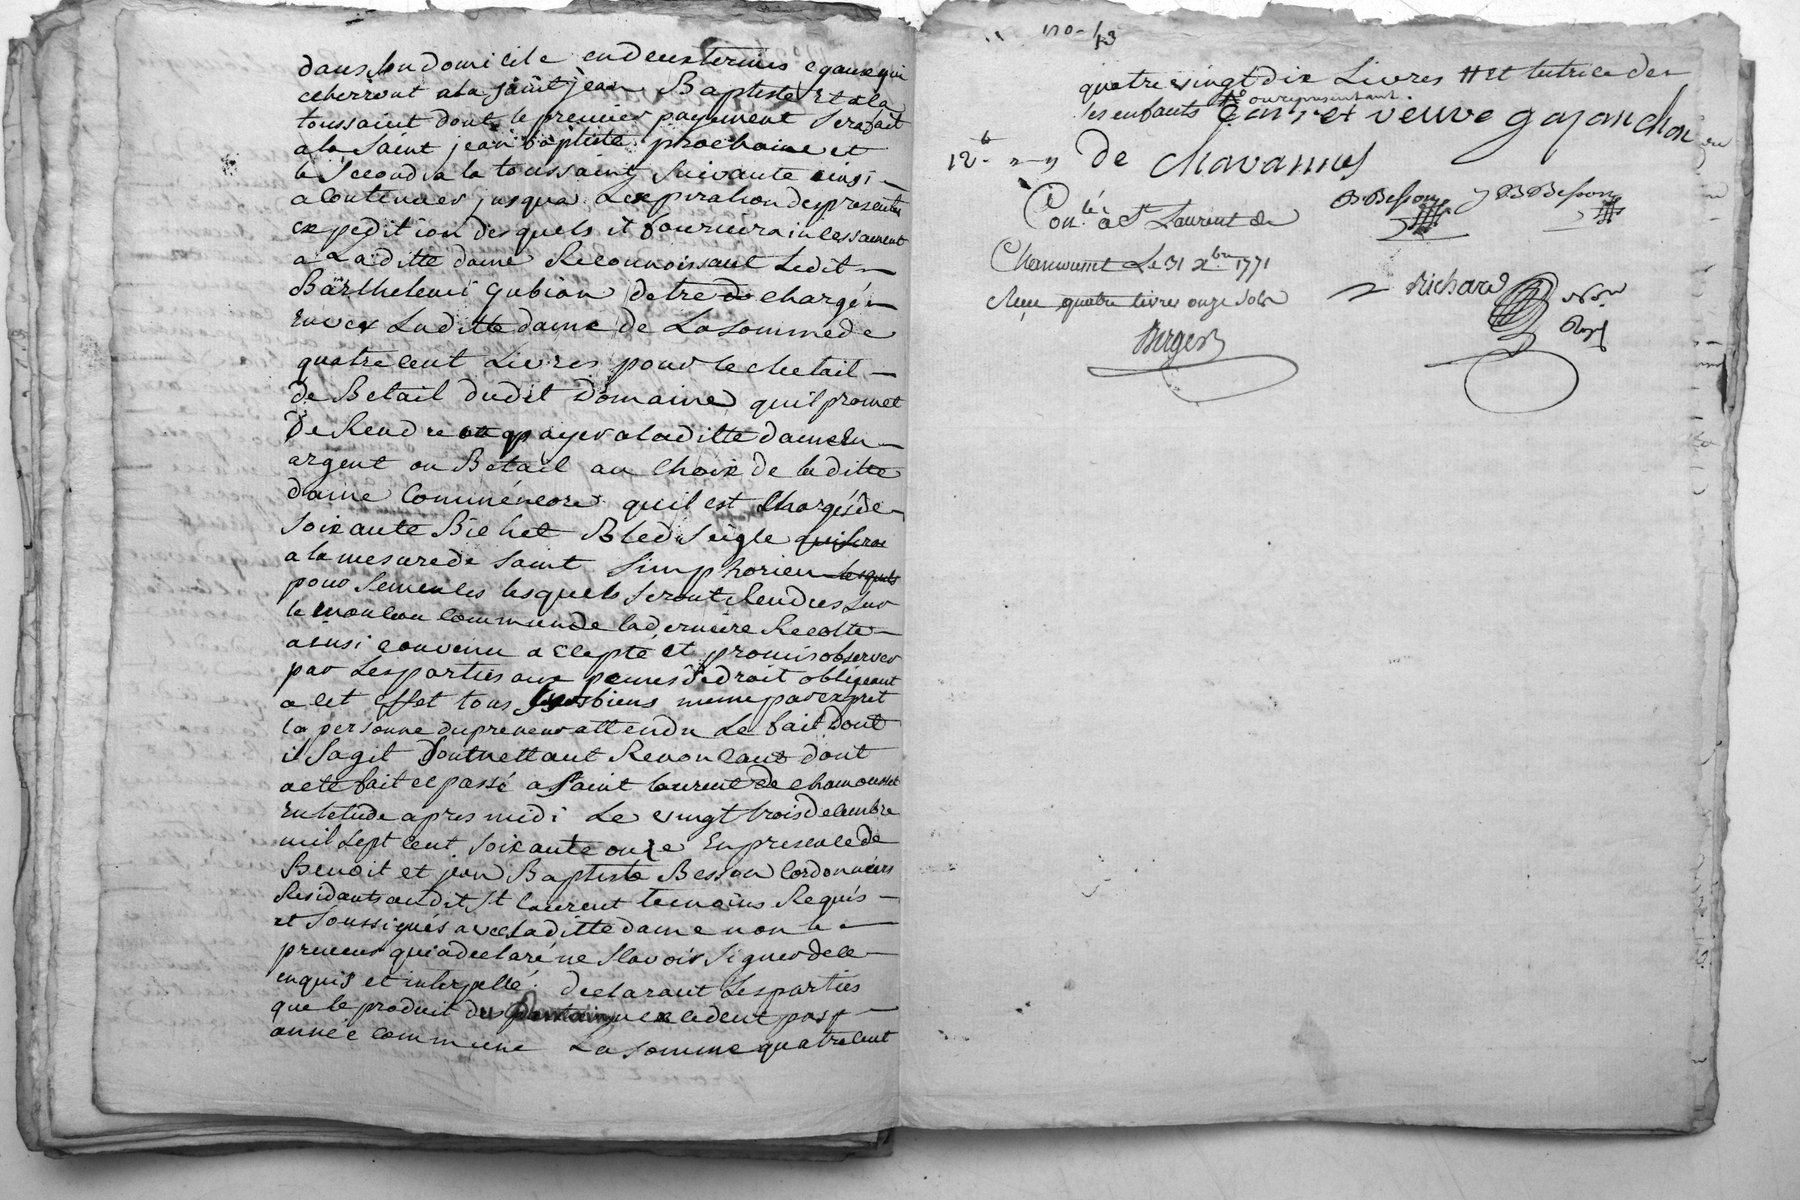 dans son domicile en deux termes egaux qui
echerront a la saint jean Baptiste Et a la
toussaint dont le premier payement sera fait
a la Saint jean baptiste prochaine et
le second a la toussaint suivante ainsi
a Continuer jusqua Lexpiration des presentes
expedition desquels il fournira incessament
a Laditte dame Reconnoissant Ledit
Barthelemi gubian detre de chargé
Envers Laditte dame de La somme de
quatre cent Livres pour le chetail
de Betail dudit Domaine quil promet
De Rendre payer a laditte dame En
argent ou Betail au choix de laditte
dame Comme encore quil est Chargé de
soixante Bichet Bled seigle qui sera
a la mesure de saint simphorien lesquels
pour semences lesquels seront Rendues sur
le monceau commun de la derniere Recolte
ainsi convenu accepté et promis observer
par Les parties aux peines de droit obligeant
a cet Effet tous biens meme par expret
la personne du preneur attendu Le fait Dont
il sagit Soumettant Renoncant dont
acte fait et passé a saint laurent de chamousset
En letude apres midi Le vingt trois decembre
mil sept cent soixante onze En presence de
Benoit et jean Baptiste Besson Cordonniers
Residants audit St laurent temoins Requis
et soussignés avec laditte dame non le
preneur qui a declaré ne sçavoir signer de ce
enquis et interpellé. declarant Les parties
que le produit du excedent pas
année commune La somme quatre cent
110- 13
quatre vingt dix Livres et tutrice de
ses enfants ou representant veuve gajanchon
12 de chavannes
Conlé a St Laurent de
Chamousset Le 31 xbre 1771
Reçu quatre livres onze sols
Berger
B Besson J B Besson
Richard
Nore
Royl